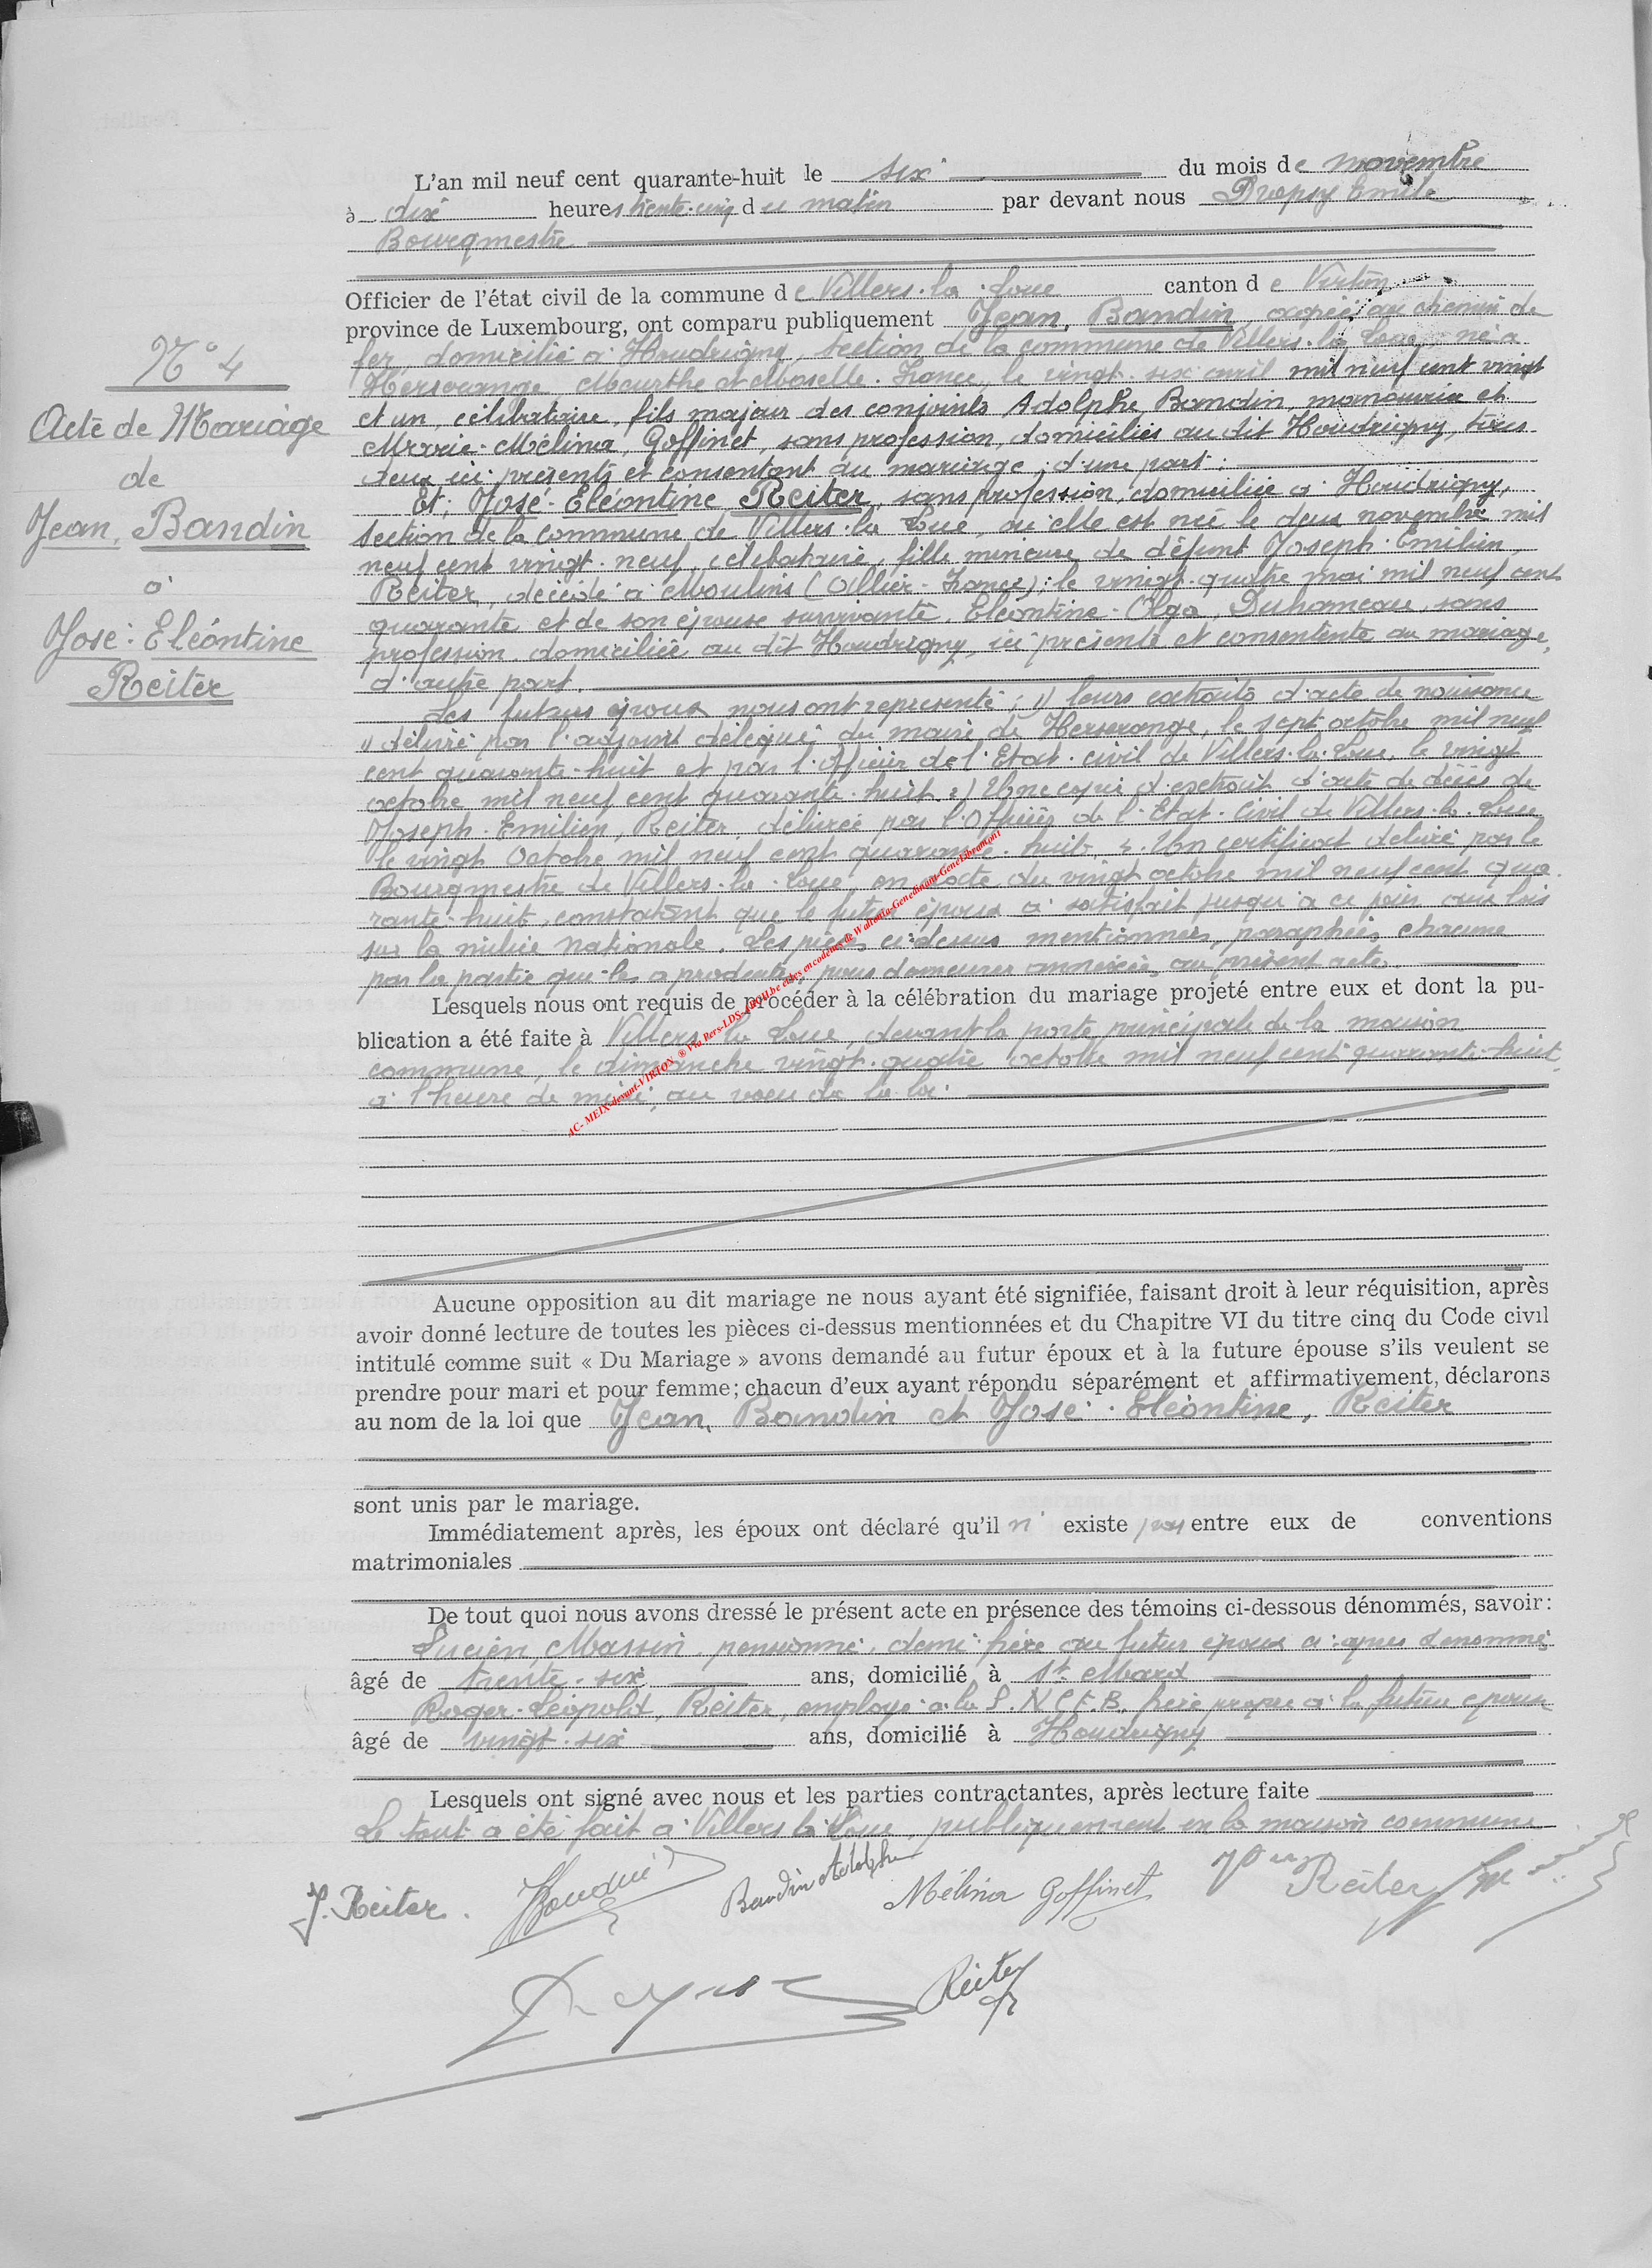 L'an mil neuf cent quarante-huit le six du mois de novembre
à dix heures trente-cinq du matin par devant nous Dropsy Emile
Bourgmestre
Officier de l'état civil de la commune de Villers-la-Loue canton de Virton
province de Luxembourg, ont comparu publiquement Jean, Baudin, agréé au chemin de
fer, domicilié à Houdrigny, section de la commune de Villers-la-Loue, né à
Herserange Meurthe et Moselle. France, le vingt-six avril mil neuf cent vingt
et un, célibataire, fils majeur des conjoints Adolphe, Baudin, manœuvre et
Marie-Mélina, Goffinet, sans profession, domiciliés au dit Houdrigny, tous
deux ici présents et consentant au mariage, d'une part;
Et; José-Eléontine, Reiter, sans profession, domiciliée à Houdrigny,
section de la commune de Villers-la-Loue, où elle est née le deux novembre mil
neuf cent vingt-neuf, célibataire, fille mineure de défunt Joseph-Emilien,
Reiter, décédé à Moulins (Allier-France); le vingt-quatre mai mil neuf cent
quarante et de son épouse survivante, Eléontine-Olga, Duhameau, sans
profession, domiciliée au dit Houdrigny, ici présente et consentente au mariage,
d'autre part.
Les futurs époux nous ont représenté; 1) leurs extraits d'acte de naissance
délivré par l'adjoint délégué du maire de Herserange, le sept octobre mil neuf
cent quarante-huit et par l'Officier de l'Etat-civil de Villers-la-Loue, le vingt
octobre mil neuf cent quarante-huit. 2) Une copie d'extrait d'acte de décès de
Joseph-Emilien, Reiter, délivrée par l'Officier de l'Etat-Civil de Villers-la-Loue
le vingt Octobre mil neuf cent quarante-huit. 3. Un certificat délivré par le
Bourgmestre de Villers-la-Loue, en date du vingt octobre mil neuf cent qua-
rante-huit, constatant que le futur époux a satisfait jusqu'à ce jour aux lois
sur la milice nationale. Les pièces ci-dessus mentionnées, paraphées chacune
par la partie qui les a produite, pour demeurer annexées au présent acte.
Lesquels nous ont requis de procéder à la célébration du mariage projeté entre eux et dont la pu-
blication a été faite à Villers-la-Loue, devant la porte principale de la maison
commune, le dimanche vingt-quatre octobre mil neuf cent quarante-huit,
à l'heure de midi, au vœu de la loi.
Aucune opposition au dit mariage ne nous ayant été signifiée, faisant droit à leur réquisition, après
avoir donné lecture de toutes les pièces ci-dessus mentionnées et du Chapitre VI du titre cinq du Code civil
intitulé comme suit « Du Mariage » avons demandé au futur époux et à la future épouse s'ils veulent se
prendre pour mari et pour femme; chacun d'eux ayant répondu séparément et affirmativement, déclarons
au nom de la loi que Jean, Baudin et José-Eléontine, Reiter
sont unis par le mariage.
Immédiatement après, les époux ont déclaré qu'il n' existe pas entre eux de conventions
matrimoniales
De tout quoi nous avons dressé le présent acte en présence des témoins ci-dessous dénommés, savoir:
Lucien, Massin, pensionné, demi-frère au futur époux
âgé de trente-six ans, domicilié à St Mard
Roger-Léopold, Reiter, employé à la S.N.C.F.B., frère propre à la future épouse
âgé de vingt-six ans, domicilié à Houdrigny
Lesquels ont signé avec nous et les parties contractantes, après lecture faite
Le tout a été fait à Villers-la-Loue, publiquement en la maison commune
J. Reiter. Baudin Baudin Adolphe Mélina Goffinet Reiter
Dropsy Reiter
N° 4
Acte de Mariage
de
Jean, Baudin
à
José-Eléontine
Reiter
AC- MEIX-devant-VIRTON ® Via Pers-LDS-AROU.be et les encodeurs de Wallonia-Genedinant-GeneLibramont